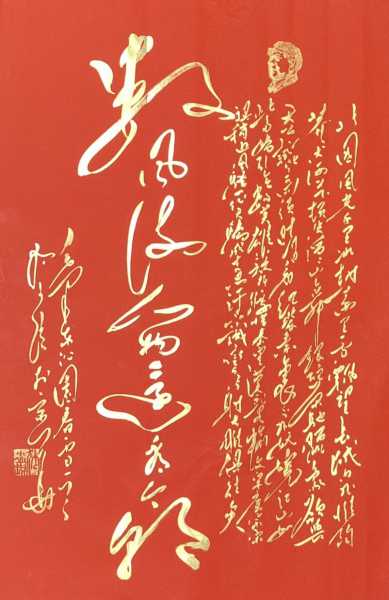 北国风光千里冰封万里雪飘望长城内外惟馀
莽莽大河上下顿失滔滔山舞银蛇原驰腊象欲与
天公试比高须晴日看红装素裹分外妖娆江山如
此多娇引无数英雄竞折腰惜秦皇汉武略输文采唐宗宋
祖稍逊风骚一代天骄成吉思汗只识弯弓射大雕俱往矣
数风流人物还看今朝
毛泽东沁园春雪一首